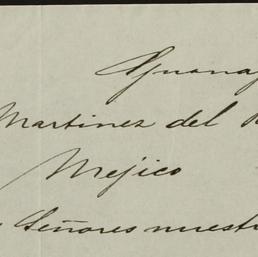 Guanaj
Martinez del R
Mejico
Señores nuest